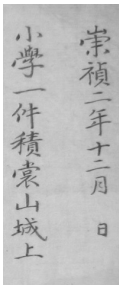 崇禎二年十二月 日
小學一件積裳山城上